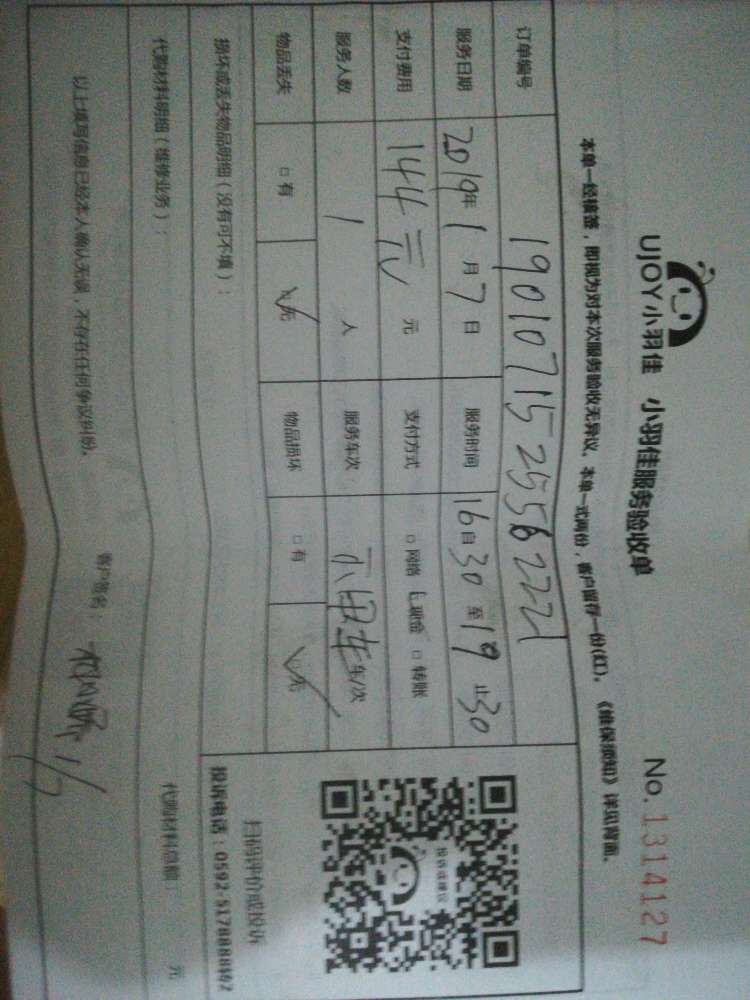 UJOY小羽佳 小羽佳服务验收单 No.1314127
本单一经横签，即视为对本次服务验收无异议。本单一式两份，客户留存一份(红)。《维保须知》详见背面。
订单编号 1901071525562221
服务日期 2019年1月7日 服务时间 16自30至19止30
支付费用 144元 元 支付方式 □网络 ☑现金 □转账
服务人数 1 人 服务车次 车/次
物品丢失 □有 ☑无 物品损坏 □有 ☑无
损坏或丢失物品明细（没有可不填）：
投诉或建议
扫码评价或投诉
代购材料明细（维修业务）：
代购材料总额： 元
以上填写信息已经本人确认无误，不存在任何争议纠纷。
客户签名：